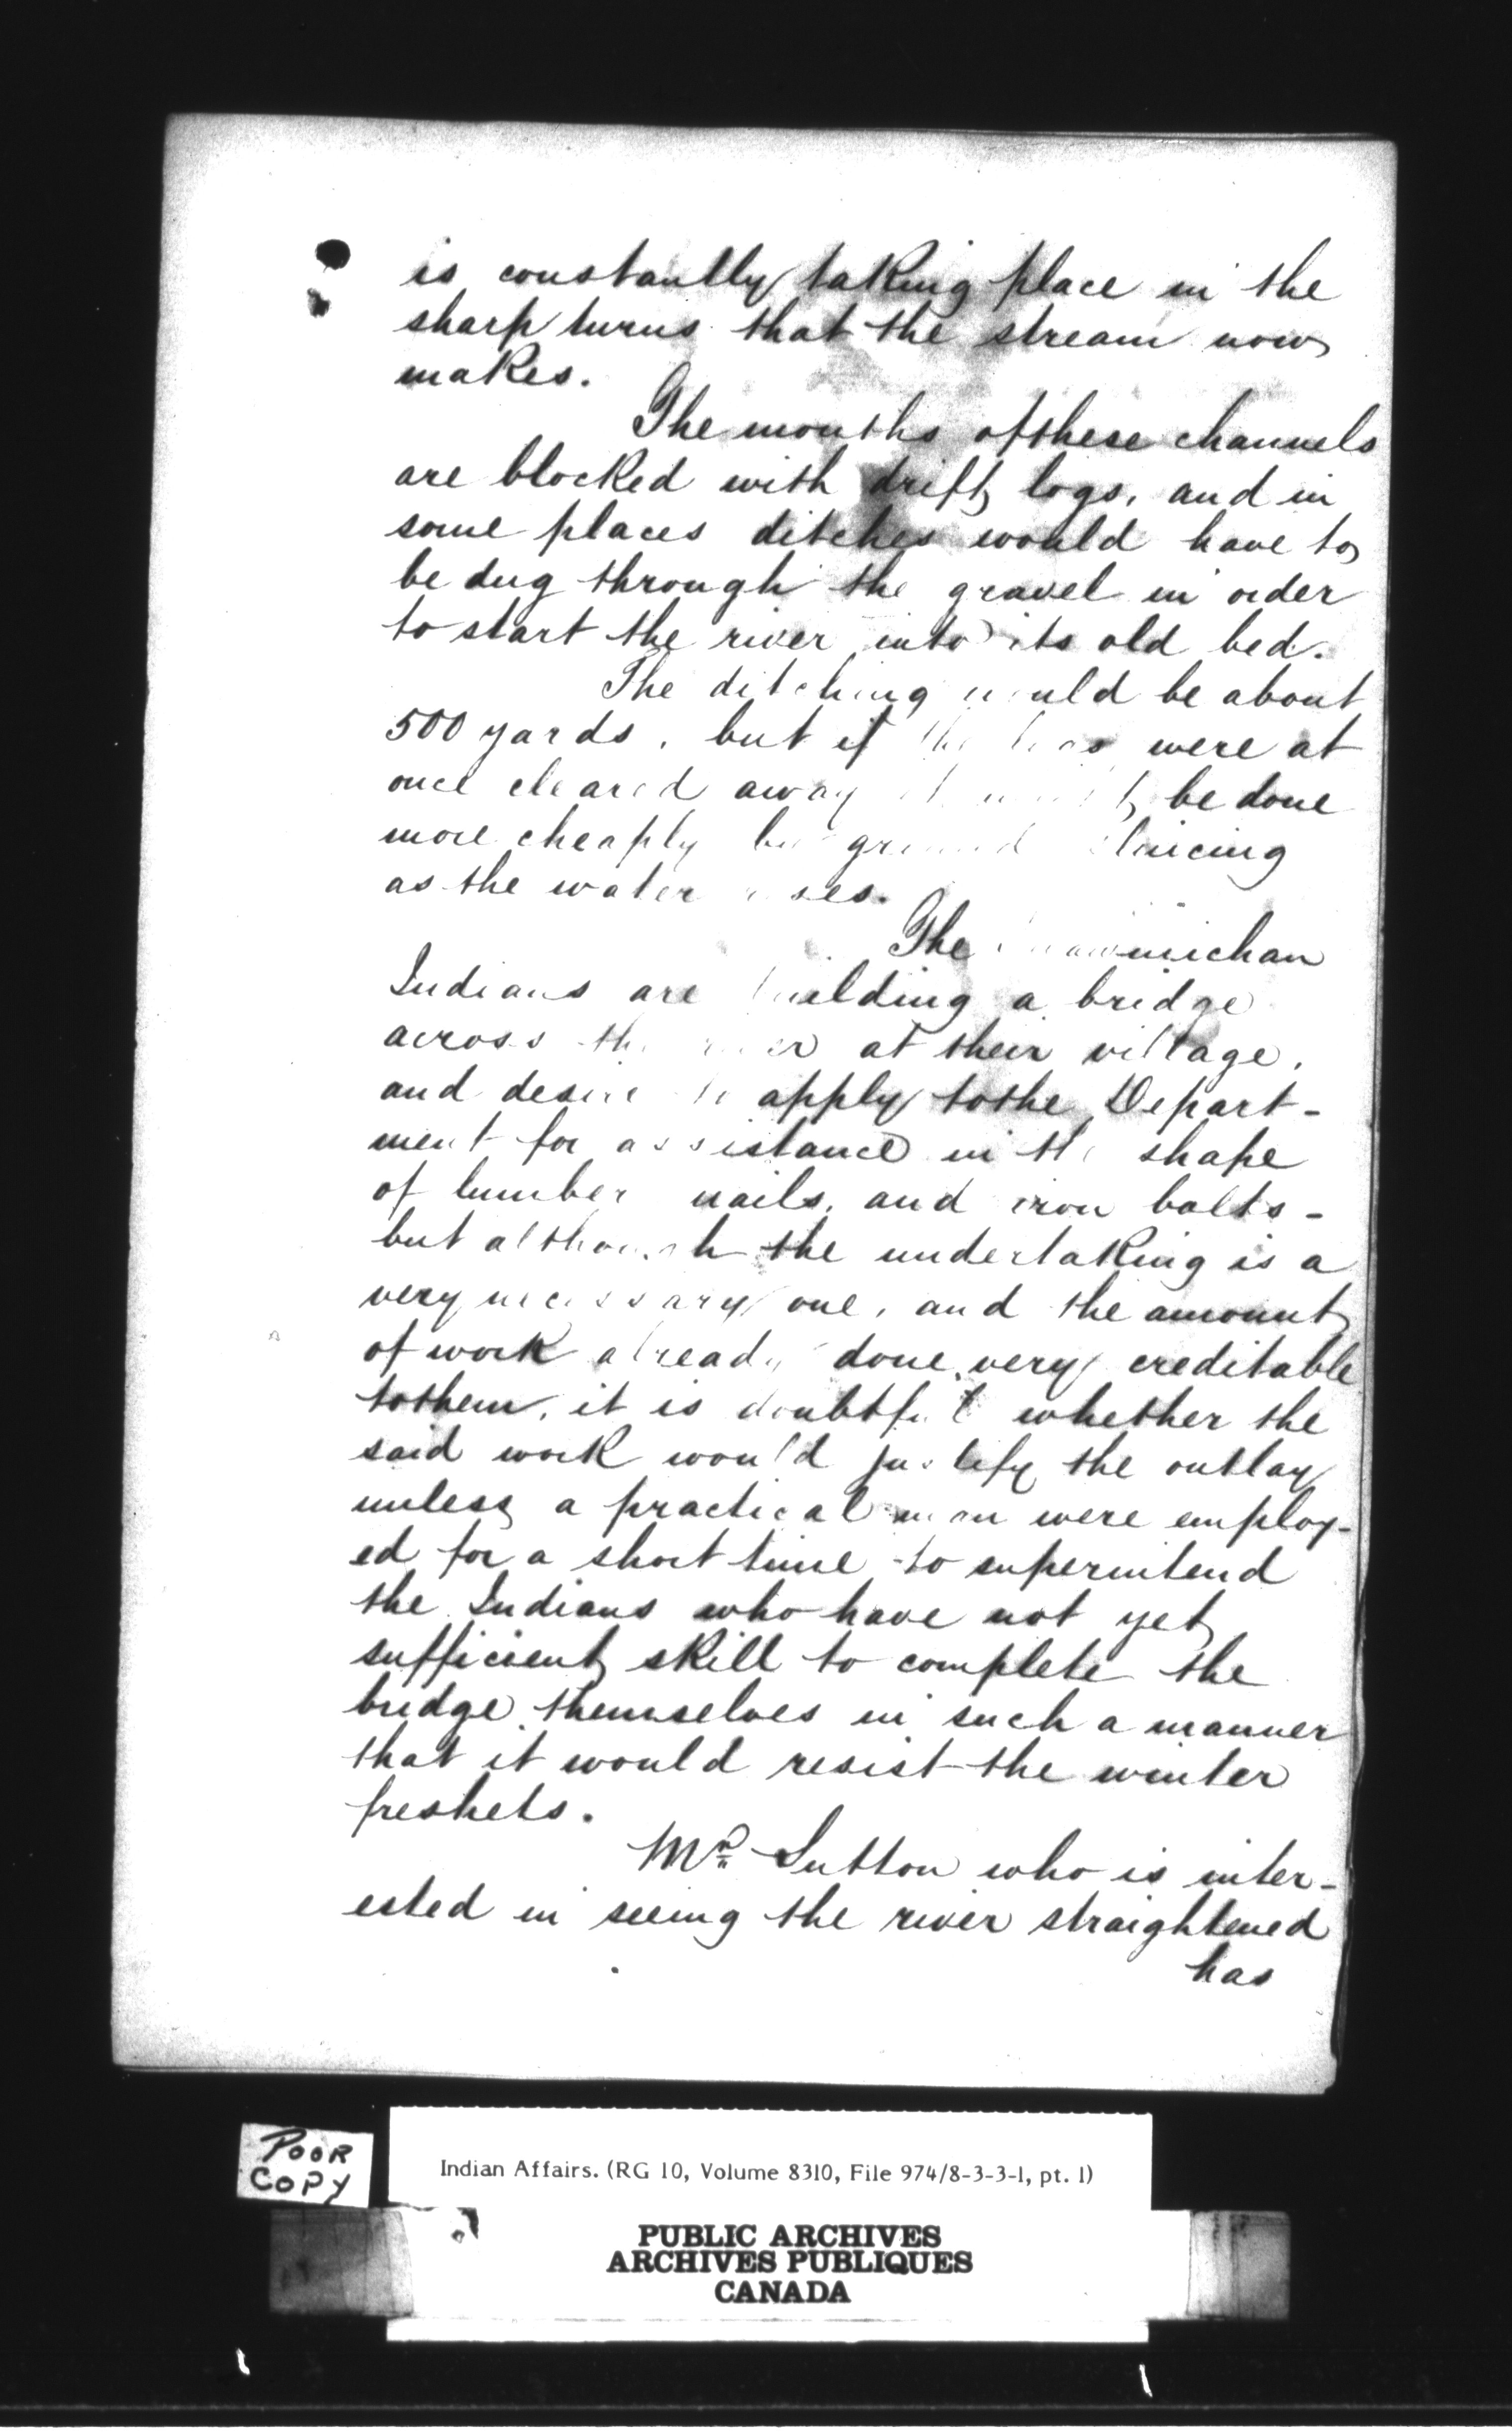 is constantly taking place in the
sharp turns that the stream now
makes.
The mouths of these channels
are blocked with drift logs, and in
some places ditches would have to
be dug through the gravel in order
to start the river into its old bed.
The ditching would be about
500 yards, but if the were at
once cleared away it be done
more cheaply by ground sluicing
as the water rises.
The
Indians are building a bridge
across the river at their village,
and desire to apply to the Depart-
ment for assistance in the shape
of lumber nails, and iron bolts -
but although the undertaking is a
very necessary one, and the amount
of work already done, very creditable
to them, it is doubtful whether the
said work would justify the outlay
unless a practical man were employ-
ed for a short time to superintend
the Indians who have not yet
sufficient skill to complete the
bridge themselves in such a manner
that it would resist the winter
freshets.
Mr Sutton who is inter-
ested in seeing the river straightened
has
POOR
COPY
Indian Affairs. (RG 10, Volume 8310, File 974/8-3-3-1, pt. 1)
PUBLIC ARCHIVES
ARCHIVES PUBLIQUES
CANADA